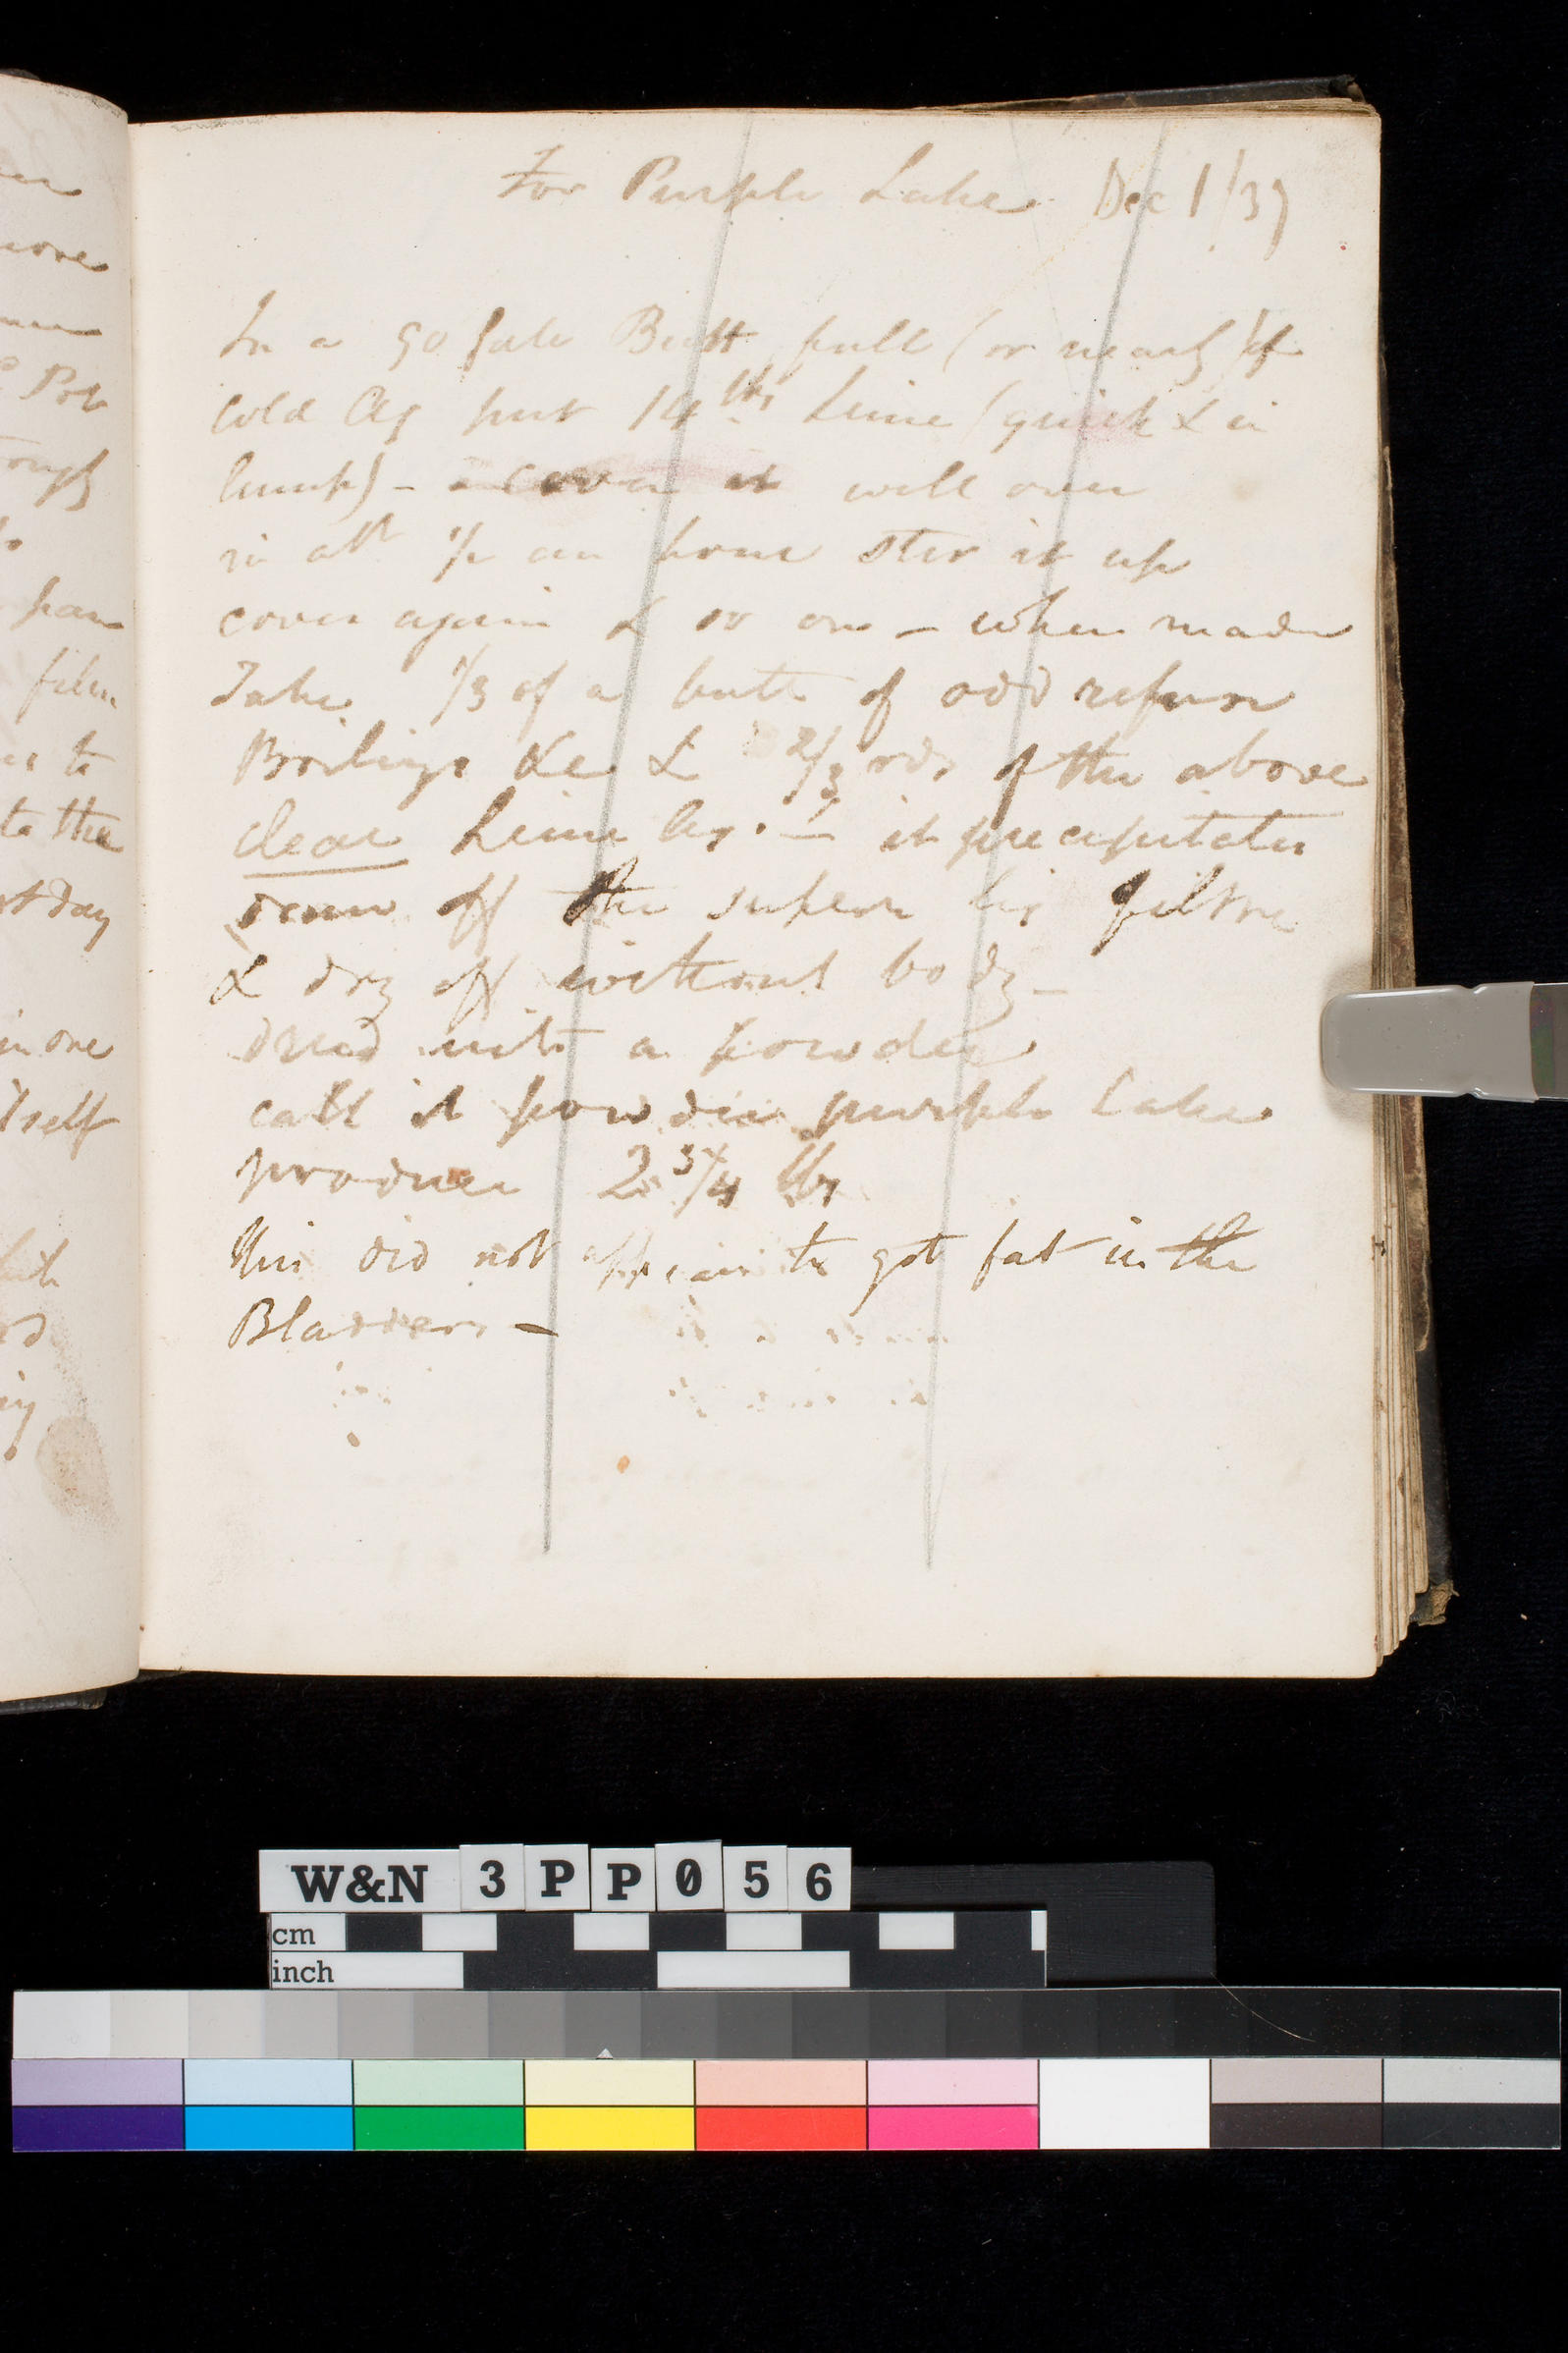 For Purple Lake Dec 1/37
In a 90 Galn Butt full (or nearly) of
Cold Aq put 14 lbs Lime (quick & in
lump) - cover it well over
in abt 1/2 an hour stir it up
cover again & so on - when made
Take 1/3 of a butt of odd refuse
Boilings &c & 2/3rds of the above
clear Lime Aq. - it precipitates
draw off the super liq filtre
& dry off without body -
dried into a powder
call it powder purple Lake
produce 2 3/4 lbs
this did not appear to get fat in the
Bladders -
ore
Pot
pan
to the
st day
in one
itself
W&N 3PP056
cm
inch